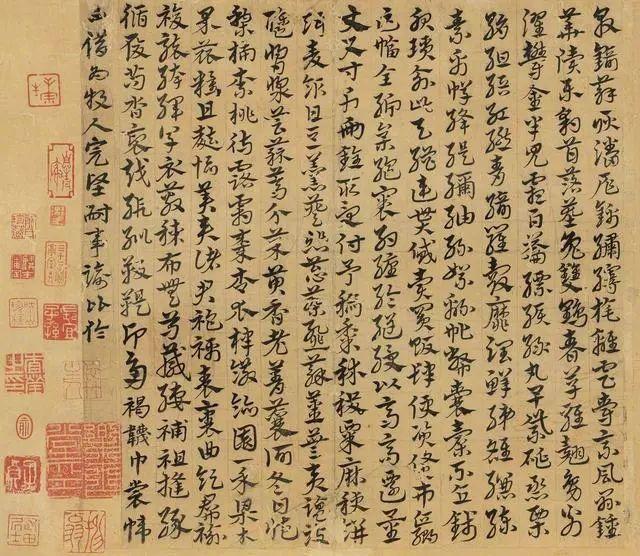 錦繡縵旄離雲爵乘風縣鍾
華洞樂豹首落莫兔雙鶴春草雞翹鳧翁
濯鬱金半見霜白縹綟綠丸皁紫硟烝栗
絹紺縉紅繎青綺羅縠靡潤鮮綈雒縑練
素帛蟬絳緹絓紬絲絮綿敝囊橐不直錢
服瑣緰與繒連貰貸賣買販肆便資貨市贏
匹幅全紿枲裹約纏綸組綬以高遷量
丈尺寸斤兩銓取受付予稻黍秫稷粟麻秔餅
餌麥飯甘豆羹葵韭蔥蓼薤蘇薑蕪荑鹽豉
醯酢醬芸蒜薺芥茱萸香老菁蘘荷冬日藏
梨柿柰桃待露霜棗杏瓜棣饊飴園菜果
蓏糧甘麩恬美奏諸君袍襦表裏曲領裙襜
複袴褌襌衣蔽膝布無尊箴縷補袒摧緣
循履舄鞜裒絨緞紃靸鞮卬角褐襪巾裳
不借為牧人完堅耐事踰比倫